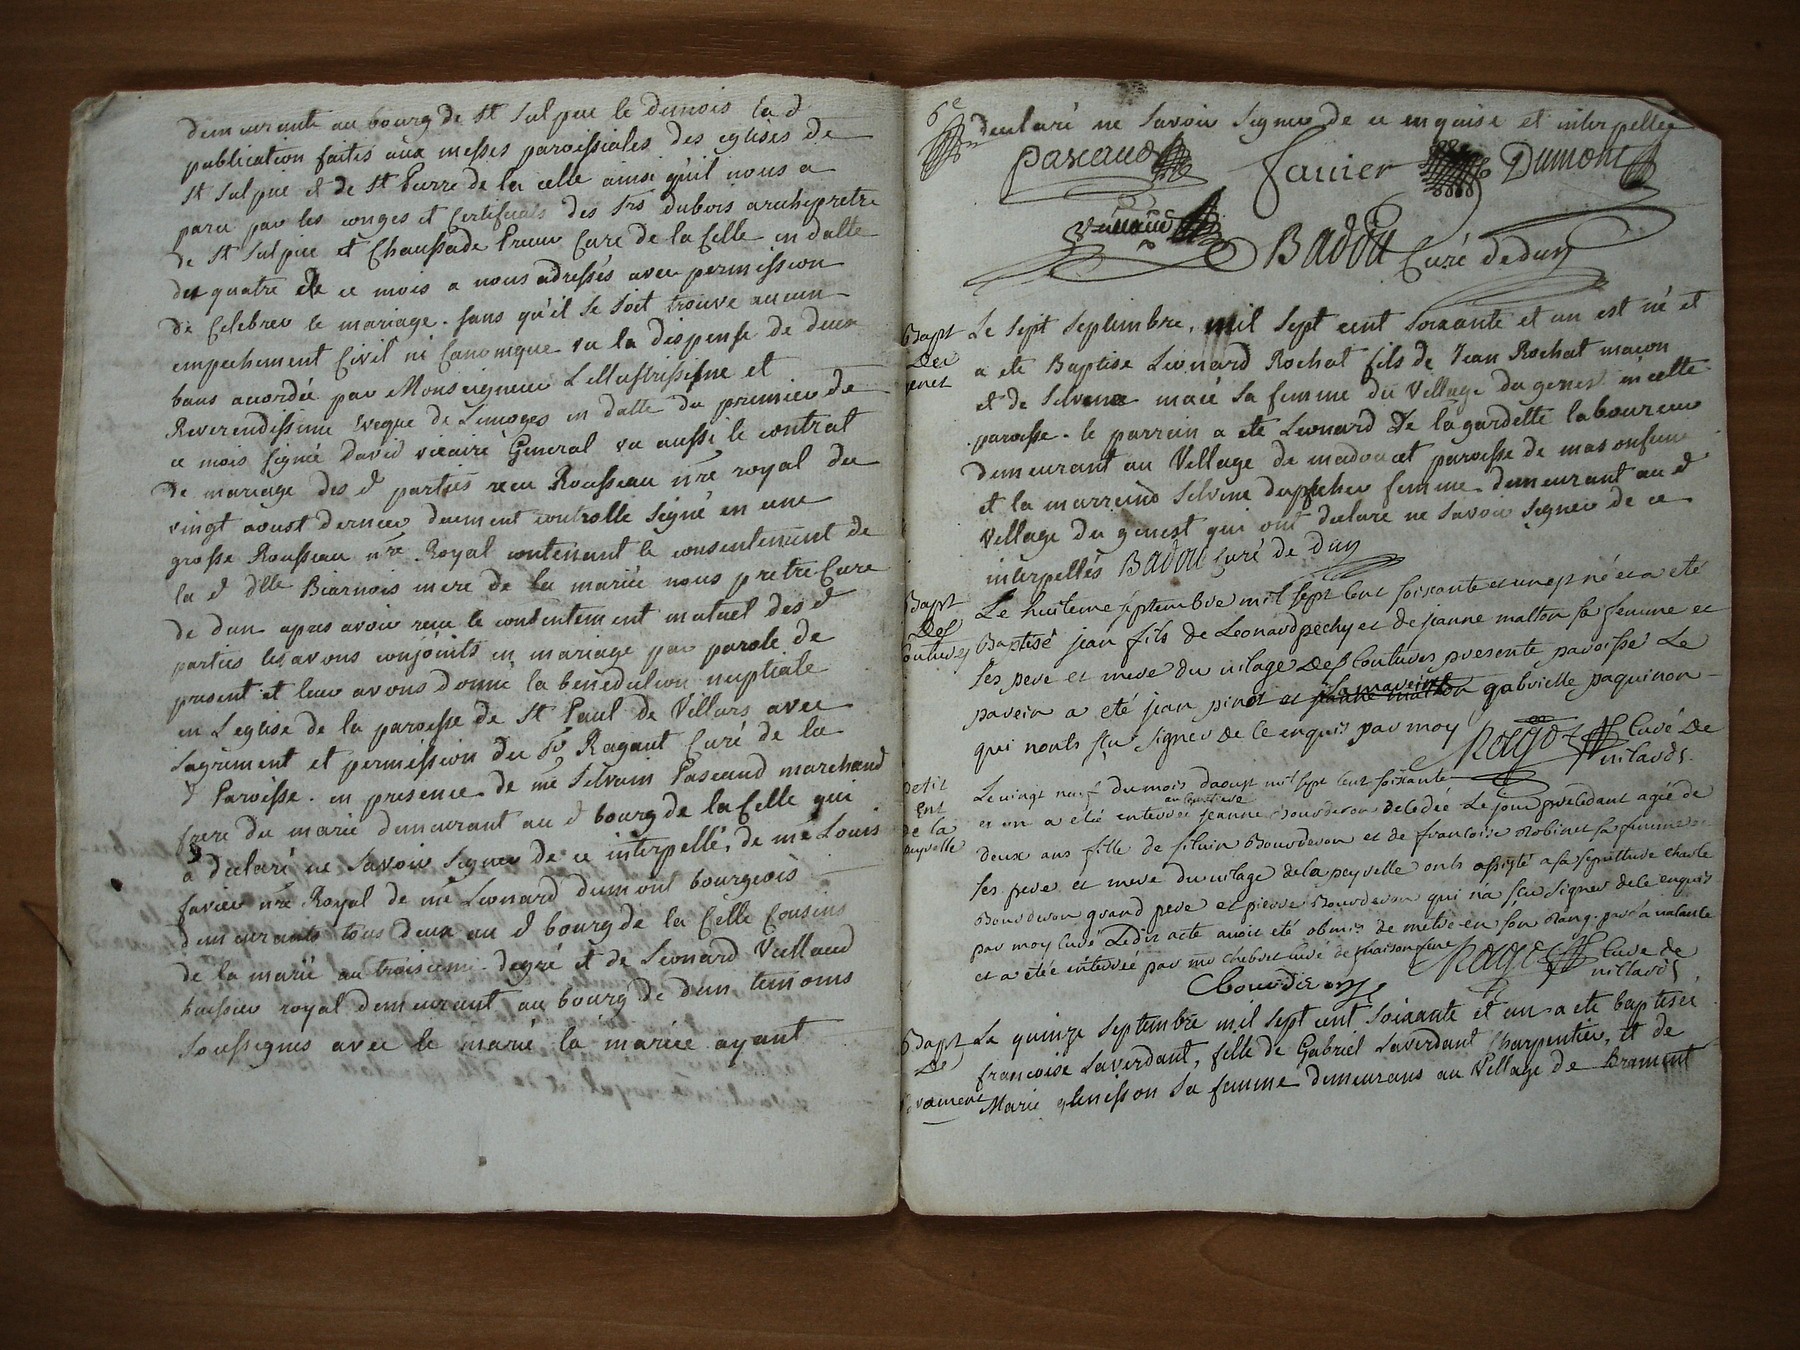 demeurante au bourg de St Sulpice le dunois la d
publication faites aux messes paroissiales des eglises de
St Sulpice et de St Pierre de la celle ainsi qu'il nous a
paru par les conges et Certificats des Srs dubois archipretre
de St Sulpice et Chaussade Prieur Curé de la Celle en datte
du quatre de ce mois a nous adressés avec permission
de Celebrer le mariage. sans qu'il se soit trouvé aucun
empechement Civil ni Canonique vu la dispense de deux
bans accordée par Monseigneur L'illustrissime et
Reverendissime Eveque de Limoges en datte du premier de
ce mois signé David vicaire General vu aussi le contrat
de mariage des d parties recu Rousseau nre royal du
vingt aoust dernier duement controllé signé en une
grosse Rousseau nre Royal contenant le consentement de
la d dlle Biarnois mere de la mariée nous pretre Curé
de dun apres avoir recu le consentement mutuel des d
parties les avons conjoints en mariage par parole de
present et leur avons donné la benediction nuptiale
en L'eglise de la paroisse de St Paul de Villars avec
Lagrement et permission du Sr Ragaut Curé de la
d Paroisse. en presence de me Silvain Pascaud marchand
frere du marié demeurant au d bourg de la Celle qui
a déclaré ne savoir signer de ce interpellé, de me Louis
favier nre Royal de me Leonard dumont bourgeois
demeurants tous deux au d bourg de la Celle Cousins
de la marié au troisieme degré et de Leonard Veillaud
huissier royal demeurant au bourg de dun temoins
soussignes avec le marié la mariée ayant
6e
declaré ne savoir signer de ce enquise et interpellée
Pascaud favier Dumont
Badou Curé de dun
Bapt
Du
genet
Le sept septembre, mil sept cent soixante et un est né et
a eté Baptise Leonard Rochat fils de Jean Rochat maçon
et de Silvine maié sa femme du Village du genest en cette
paroisse. le parrein a eté Leonard de lagardette laboureur
demeurant au Village de madoucet paroisse de
et la marreine Silvine dupicher femme demeurant au d
Village du genest qui ont declaré ne savoir signer de ce
interpellés Badou Curé de dun
Bapt
Des
coutures
Le huitieme septembre mil sept cent soixante et un est né et a eté
Baptisé jean fils de Leonard pechy et de jeanne malton sa femme et
ses pere et mere du vilage Des Coutures presente paroisse Le
parein a eté jean pinot et la mareine gabrielle paquinon
qui nonts seu signer de ce enquis par moy Ragot Curé de
villards
petit
Ent
de la
peyrelle
Le vingt neuf du mois daoust mil sept cent soixante
et un a eté enterrée jeanne Bourderon decedée Le jour precedant agée de
deux ans fille de silvin Bourderon et de francoise Robinet sa femme
ses pere et mere du vilage de la peyrelle onts assisté a sa sepulture charle
Bourderon grand pere et pierre Bourderon qui n'a seu signer de ce enquis
par moy Curé Ledit acte avoit eté obmis de metre en son Rang
et a etée enterrée par mr Chebret curé de maisonfeine Ragot Curé de
villards
CBourdiron
Bapt
De
Brament
Le quinze Septembre mil sept cent soixante et un a eté baptisée
francoise Laverdant, fille de Gabriel Laverdant Charpentier, et de
Marie glenisson sa femme demeurans au Village de Brament